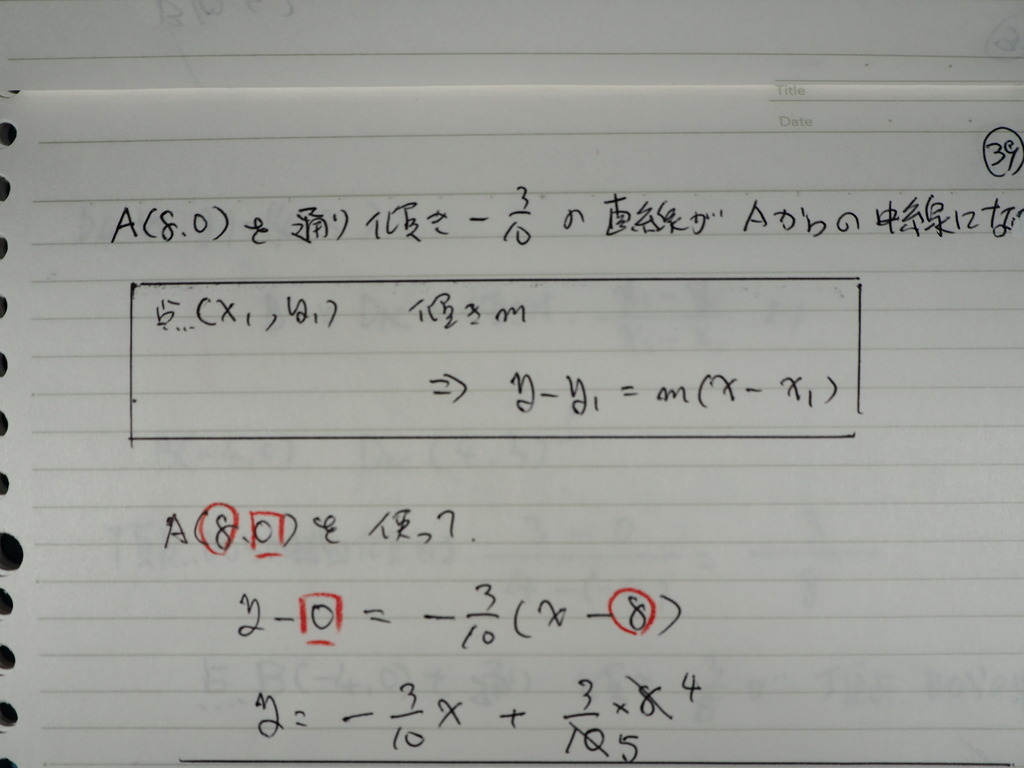 Title
Date
㊴
A(8.0)を通り傾き-3/10の直線がAからの中線にな
点(x₁, y₁) 傾きm
⇒ y-y₁ = m(x-x₁)
A(8.0)を使って.
y-0 = -3/10(x-8)
y= -3/10x + 3/10×8 4 5